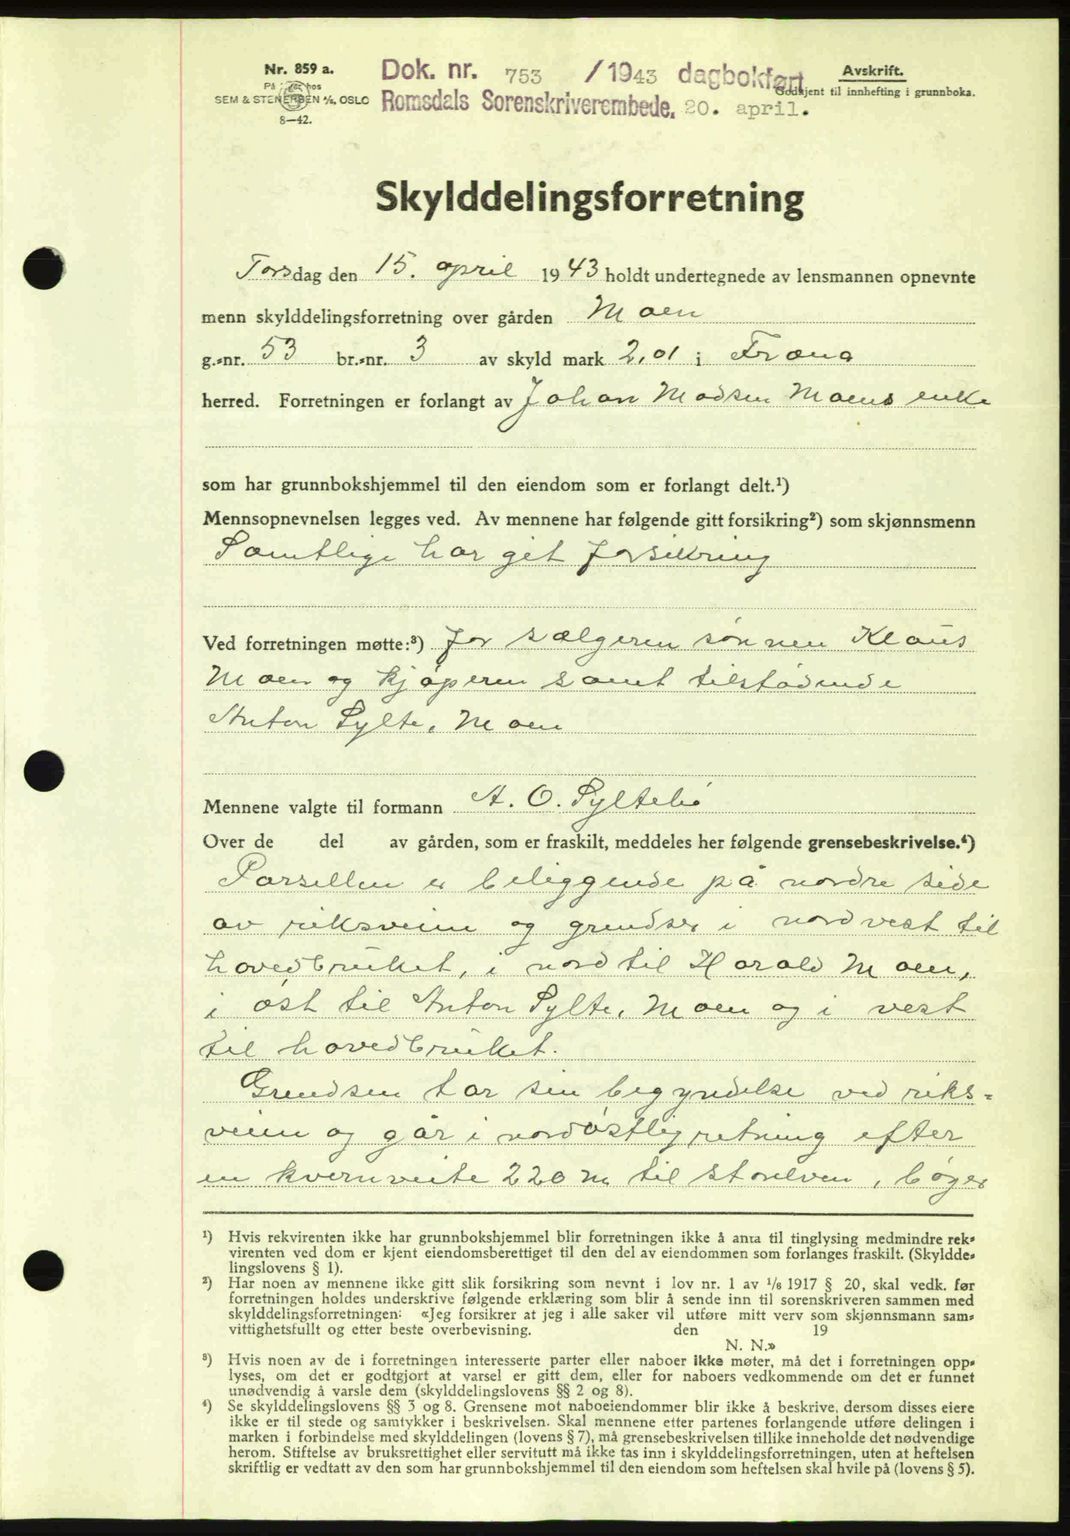 Nr. 859 a.
På lager hos
SEM & STENERSEN A/S, OSLO
8—42.
Dok. nr. 753 /1943 dagbokført
Romsdals Sorenskriverembede. 20. april.
Avskrift.
Godkjent til innhefting i grunnboka.
Skylddelingsforretning
Torsdag den 15. april 1943 holdt undertegnede av lensmannen opnevnte
menn skylddelingsforretning over gården Moen
g.-nr. 53 br.-nr. 3 av skyld mark 2,01 i Fræna
herred. Forretningen er forlangt av Johan Madsen Moens enke
som har grunnbokshjemmel til den eiendom som er forlangt delt.¹)
Mennsopnevnelsen legges ved. Av mennene har følgende gitt forsikring²) som skjønnsmenn
Samtlige har git forsikring
Ved forretningen møtte:³) for sælgeren sønnen Klaus
Moen og kjøperen samt tilstødende
Anton Sylte, Moen
Mennene valgte til formann A. O. Syltebø
Over de del av gården, som er fraskilt, meddeles her følgende grensebeskrivelse.⁴)
Parsellen er beliggende på nordre side
av riksveien og grendser i nordvest til
hovedbruket, i nord til Harald Moen,
i øst til Anton Sylte, Moen og i vest
til hovedbruket.
Grendsen tar sin begyndelse ved riks-
veien og går i nordøstlig retning efter
en kvernveite 220 m til storelven, bøyer
¹) Hvis rekvirenten ikke har grunnbokshjemmel blir forretningen ikke å anta til tinglysing medmindre rek-
virenten ved dom er kjent eiendomsberettiget til den del av eiendommen som forlanges fraskilt. (Skyldde-
lingslovens § 1).
²) Har noen av mennene ikke gitt slik forsikring som nevnt i lov nr. 1 av ¹/₈ 1917 § 20, skal vedk. før
forretningen holdes underskrive følgende erklæring som blir å sende inn til sorenskriveren sammen med
skylddelingsforretningen: «Jeg forsikrer at jeg i alle saker vil utføre mitt verv som skjønnsmann sam-
vittighetsfullt og etter beste overbevisning. den 19
N. N.»
³) Hvis noen av de i forretningen interesserte parter eller naboer ikke møter, må det i forretningen opp-
lyses, om det er godtgjort at varsel er gitt dem, eller for naboers vedkommende om det er funnet
unødvendig å varsle dem (skylddelingslovens §§ 2 og 8).
⁴) Se skylddelingslovens §§ 3 og 8. Grensene mot naboeiendommer blir ikke å beskrive, dersom disses eiere
ikke er til stede og samtykker i beskrivelsen. Skal mennene etter partenes forlangende utføre delingen i
marken i forbindelse med skylddelingen (lovens § 7), må grensebeskrivelsen tillike inneholde det nødvendige
herom. Stiftelse av bruksrettighet eller servitutt må ikke tas inn i skylddelingsforretningen, uten at heftelsen
skriftlig er vedtatt av den som har grunnbokshjemmel til den eiendom som heftelsen skal hvile på (lovens § 5).